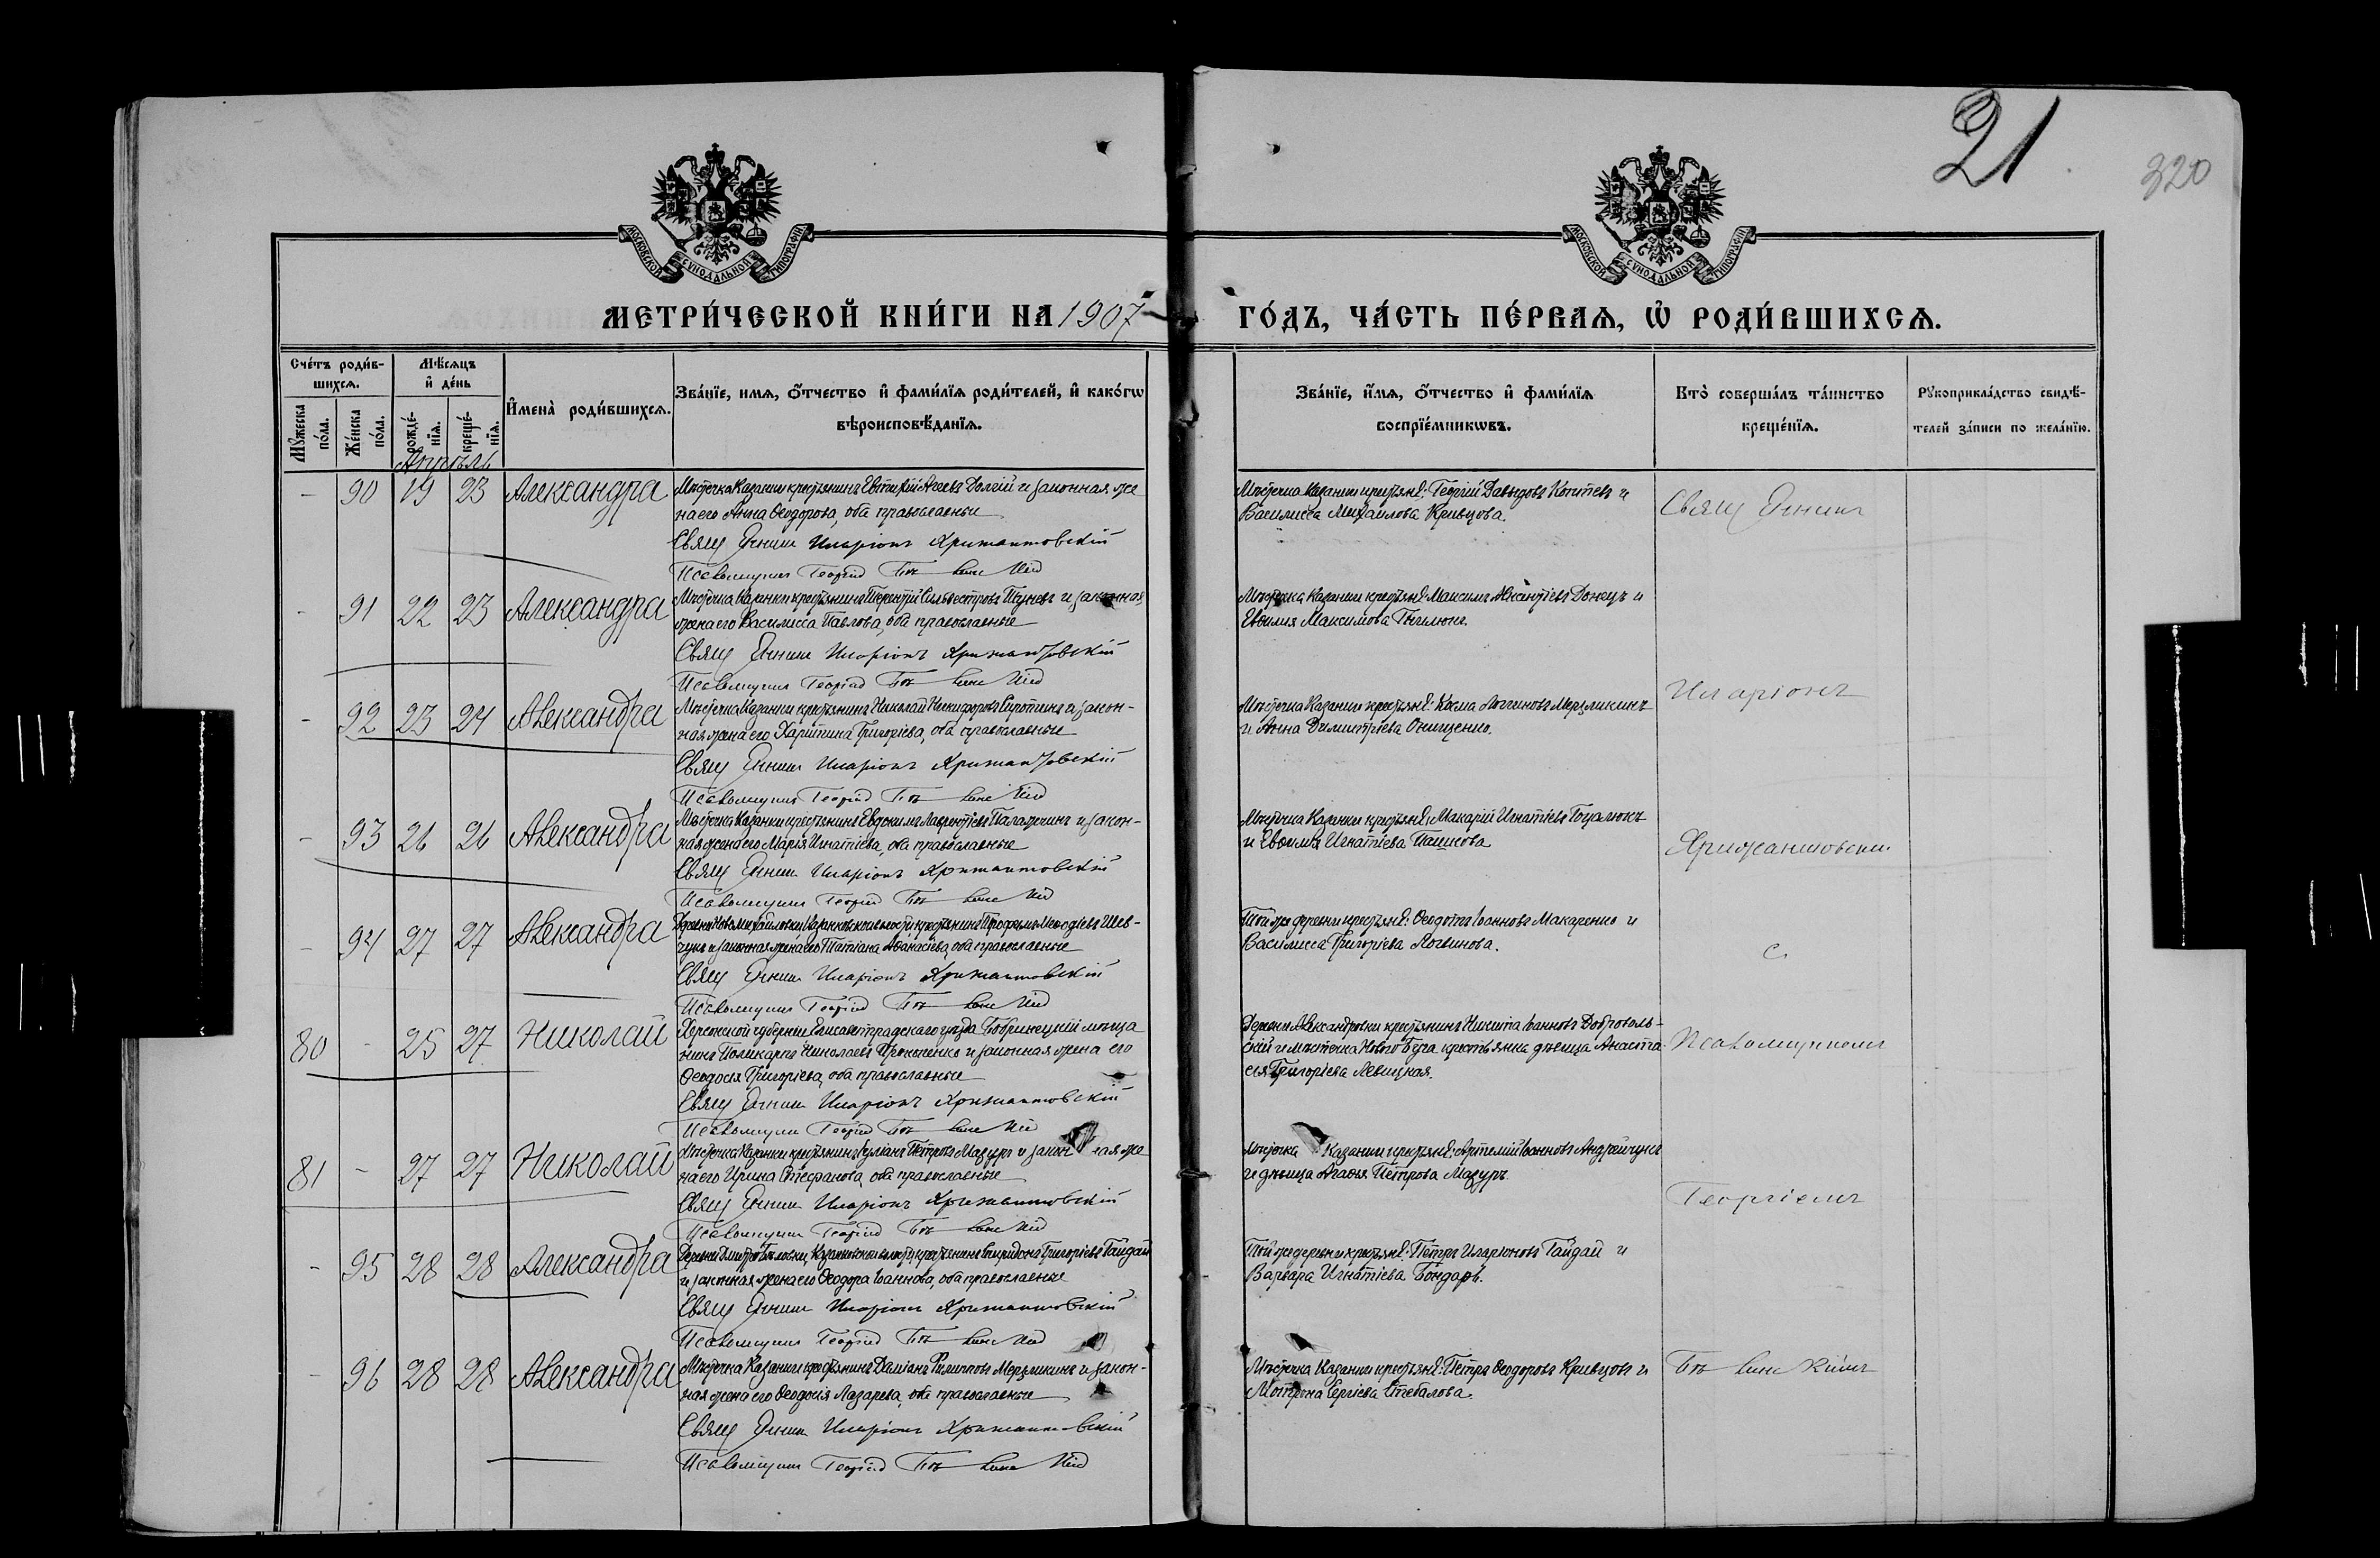 21
320
МОСКОВСКОЙ СѴНОДАЛЬНОЙ ТИПОГРАФІИ
МОСКОВСКОЙ СѴНОДАЛЬНОЙ ТИПОГРАФІИ
МЕТРИ́ЧЕСКОЙ КНИ́ГИ НА 1907 ГО́ДЪ, ЧА́СТЬ ПЕ́РВАѦ, Ѡ҆ РОДИ́ВШИХСѦ.
Сче́тъ роди́в-
шихсѧ.
Мꙋжеска по́ла.
Же́нска по́ла.
Мѣ́сѧцъ
и҆ де́нь
рожде́-
нїѧ.
креще́-
нїѧ.
И҆мена̀ роди́вшихсѧ.
Зва́нїе, имѧ, ѻ҆́тчество и҆ фами́лїѧ роди́телей, и҆ како́гѡ
вѣроисповѣ́данїѧ.
Зва́нїе, и҆́мѧ, ѻ҆́тчество и҆ фами́лїѧ
воспрїе́мникѡвъ.
Кто̀ соверша́лъ та́инство
креще́нїѧ.
Рꙋкоприкла́дство свидѣ́-
телей за́писи по жела́нїю.
Апрѣль
- 90 19 23 Александра
Мѣстечка Казанки крестьянинъ Евтихій Агеевъ Долгій и законная же
на его Анна Ѳеодорова, оба православные
Свящ Иларіонъ Хрижантовскій
Псаломщикъ Георгій
Мѣстечка Казанки крестьяне: Георгій Давыдовъ Коптевъ и
Василисса Михаилова Кривцова.
- 91 22 23 Александра
Мѣстечка Казанки крестьянинъ Терентій Сильвестровъ и законная
жена его Василисса Павлова, оба православные
Свящ Иларіонъ Хрижантовскій
Псаломщикъ Георгій
Мѣстечка Казанки крестьяне: Максимъ Донецъ и
Евѳимія Максимова
- 92 23 24 Александра
Мѣстечка Казанки крестьянинъ Николай Никифоровъ Сиротинъ и закон-
ная жена его Харитина Григоріева, оба православные
Свящ Иларіонъ Хрижантовскій
Псаломщикъ Георгій
Мѣстечка Казанки крестьяне: Косма Логгиновъ Мерзликинъ
и Анна Димитріева Онищенко.
- 93 26 26 Александра
Мѣстечка Казанки крестьянинъ Евдокимъ Лаврентіевъ и закон-
ная жена его Марія Игнатіева, оба православные
Свящ Иларіонъ Хрижантовскій
Псаломщикъ Георгій
Мѣстечка Казанки крестьяне: Макарій Игнатіевъ Гоцалюкъ
и Евѳимія Игнатіева Пашкова
- 94 27 27 Александра
Деревни Ново-Михайловки, Казанковской волости крестьянинъ Меѳодіевъ Шев-
чукъ и законная жена его Татіана Аѳанасіева, оба православные
Свящ Иларіонъ Хрижантовскій
Псаломщикъ Георгій
Той же деревни крестьяне: Ѳеодотъ Іоанновъ Макаренко и
Василисса Григоріева Логвинова.
80 - 25 27 Николай
Херсонской губерніи Елисаветградскаго уѣзда Бобринецкій мѣща
нинъ Поликарпъ Николаевъ Прокопенко и законная жена его
Ѳеодосія Григоріева, оба православные
Свящ Иларіонъ Хрижантовскій
Псаломщикъ Георгій
Деревни Александровки крестьянинъ Никита Іоанновъ Доброволь-
скій и мѣстечка Новаго Буга крестьянка дѣвица Анаста
сія Григоріева Левицкая.
81 - 27 27 Николай
Мѣстечка Казанки крестьянинъ Іуліанъ Петровъ Мазуръ и закон ная же
на его Ирина Стефанова, оба православные
Свящ Иларіонъ Хрижантовскій
Псаломщикъ Георгій
Мѣстечка Казанки крестьяне: Артемій Іоанновъ Андрейчукъ
и дѣвица Агаѳія Петрова Мазуръ.
- 95 28 28 Александра
Деревни Казанковской волости, крестьянинъ Спиридонъ Григоріевъ Гайдай
и законная жена его Ѳеодора Іоаннова, оба православные
Свящ Иларіонъ Хрижантовскій
Псаломщикъ Георгій
Той же деревни крестьяне: Петръ Иларіоновъ Гайдай и
Варвара Игнатіева Бондарь.
- 96 28 28 Александра
Мѣстечка Казанки крестьянинъ Даміанъ Филипповъ Мерзликинъ и закон-
ная жена его Ѳеодосія Лазарева, оба православные
Свящ Иларіонъ Хрижантовскій
Псаломщикъ Георгій
Мѣстечка Казанки крестьяне: Петръ Ѳеодоровъ Кривцовъ и
Мотрона Сергіева Стебалова.
Свящ
Иларіонъ
Хрижантовскій
с
Псаломщикомъ
Георгіемъ